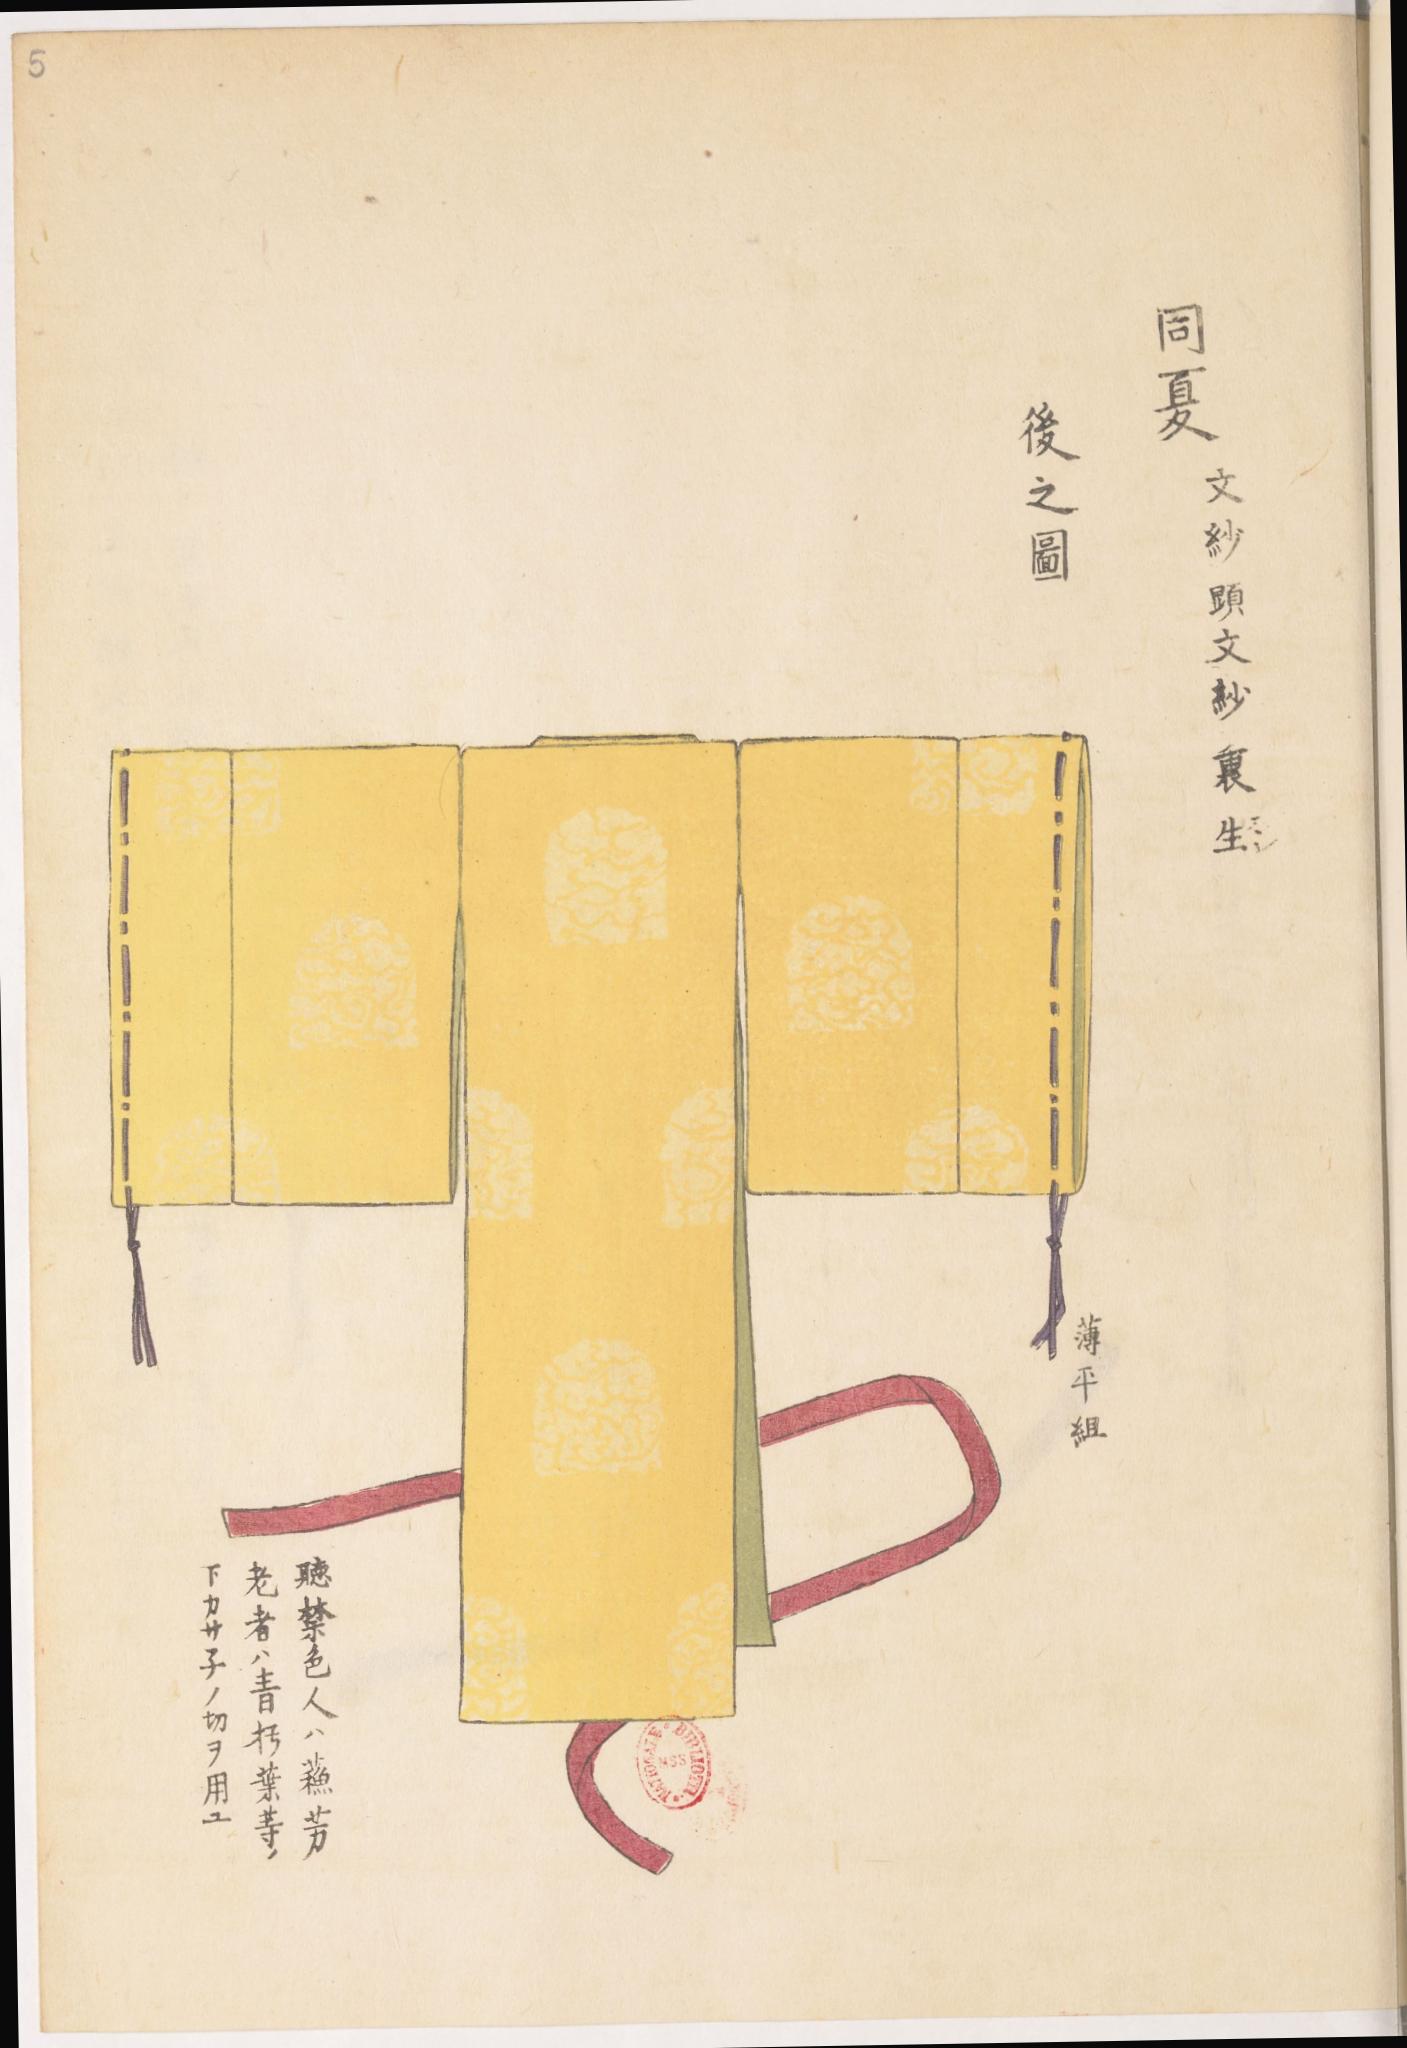 同夏
文紗顕文紗裏生
後之圖
薄平組
聽禁色人ハ蘓芳
老者ハ青朽葉等ノ
下カサ子ノ切ヲ用ユ
5
BIBLIOTH. NATIONALE
MSS